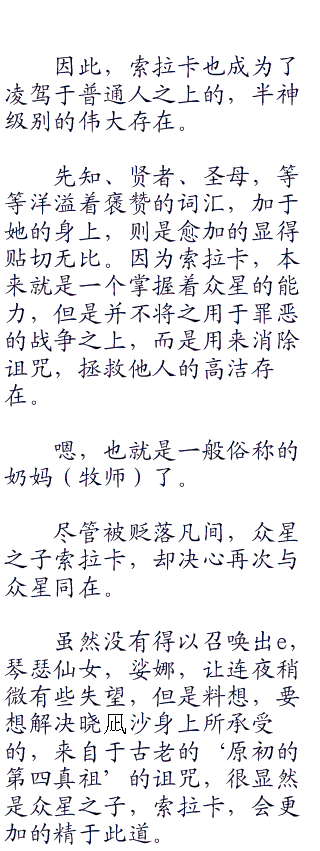 因此，索拉卡也成为了
凌驾于普通人之上的，半神
级别的伟大存在。
先知、贤者、圣母，等
等洋溢着褒赞的词汇，加于
她的身上，则是愈加的显得
贴切无比。因为索拉卡，本
来就是一个掌握着众星的能
力，但是并不将之用于罪恶
的战争之上，而是用来消除
诅咒，拯救他人的高洁存
在。
嗯，也就是一般俗称的
奶妈（牧师）了。
尽管被贬落凡间，众星
之子索拉卡，却决心再次与
众星同在。
虽然没有得以召唤出e，
琴瑟仙女，娑娜，让连夜稍
微有些失望，但是料想，要
想解决晓凪沙身上所承受
的，来自于古老的‘原初的
第四真祖’的诅咒，很显然
是众星之子，索拉卡，会更
加的精于此道。